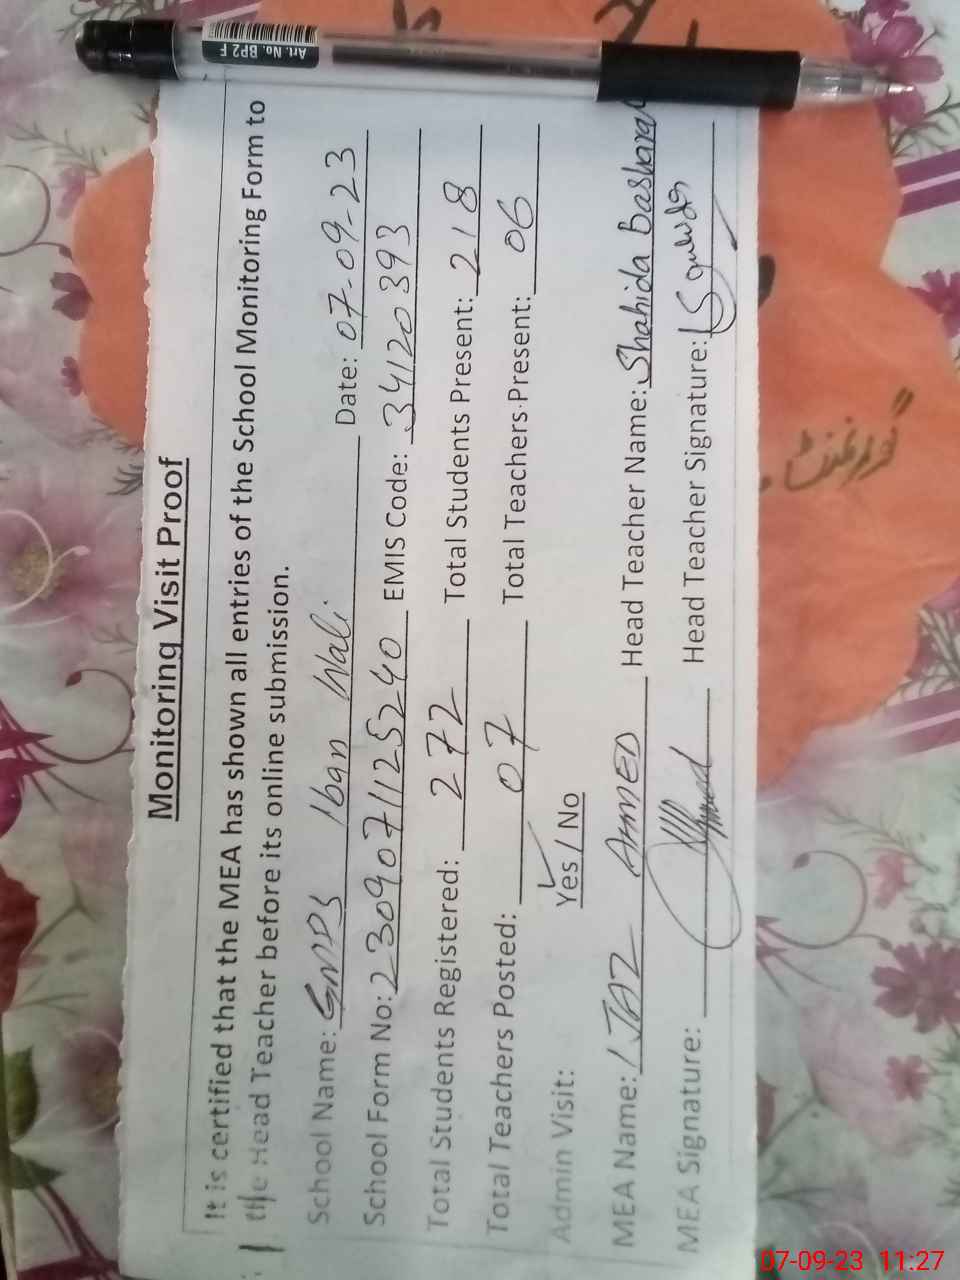 Art. No. BP2 F
Monitoring Visit Proof
It is certified that the MEA has shown all entries of the School Monitoring Form to
the Head Teacher before its online submission.
School Name: GMPS Iban Wali Date: 07-09-23
School Form No: 2309071125240 EMIS Code: 34120393
Total Students Registered: 272 Total Students Present: 218
Total Teachers Posted: 07 Total Teachers Present: 06
Admin Visit: Yes / No
MEA Name: IJAZ AHMED Head Teacher Name: Shahida Basharat
MEA Signature: Head Teacher Signature:
گورنمنٹ
07-09-23 11:27